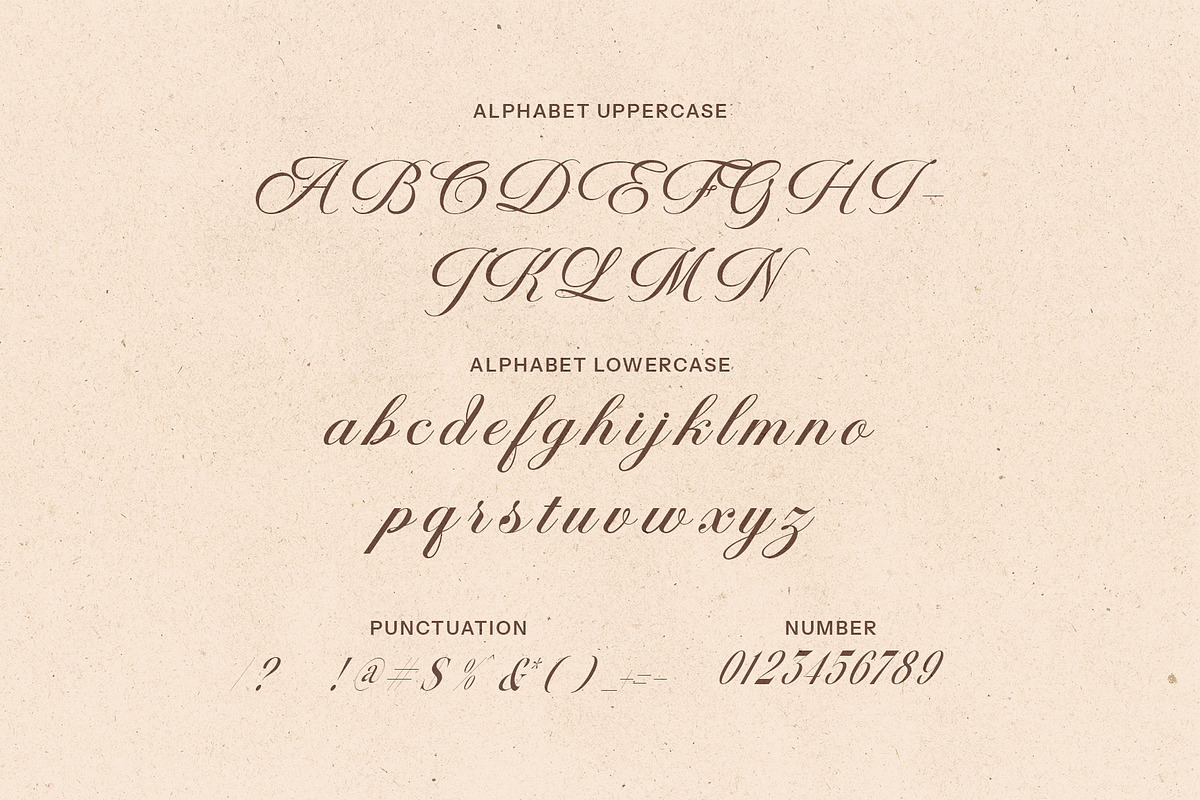 ALPHABET UPPERCASE
ABCDEFGHI-
JKLMN
ALPHABET LOWERCASE
abcdefghijklmno
pqrstuvwxyz
PUNCTUATION
/? !@#$%&*()_+=-
NUMBER
0123456789